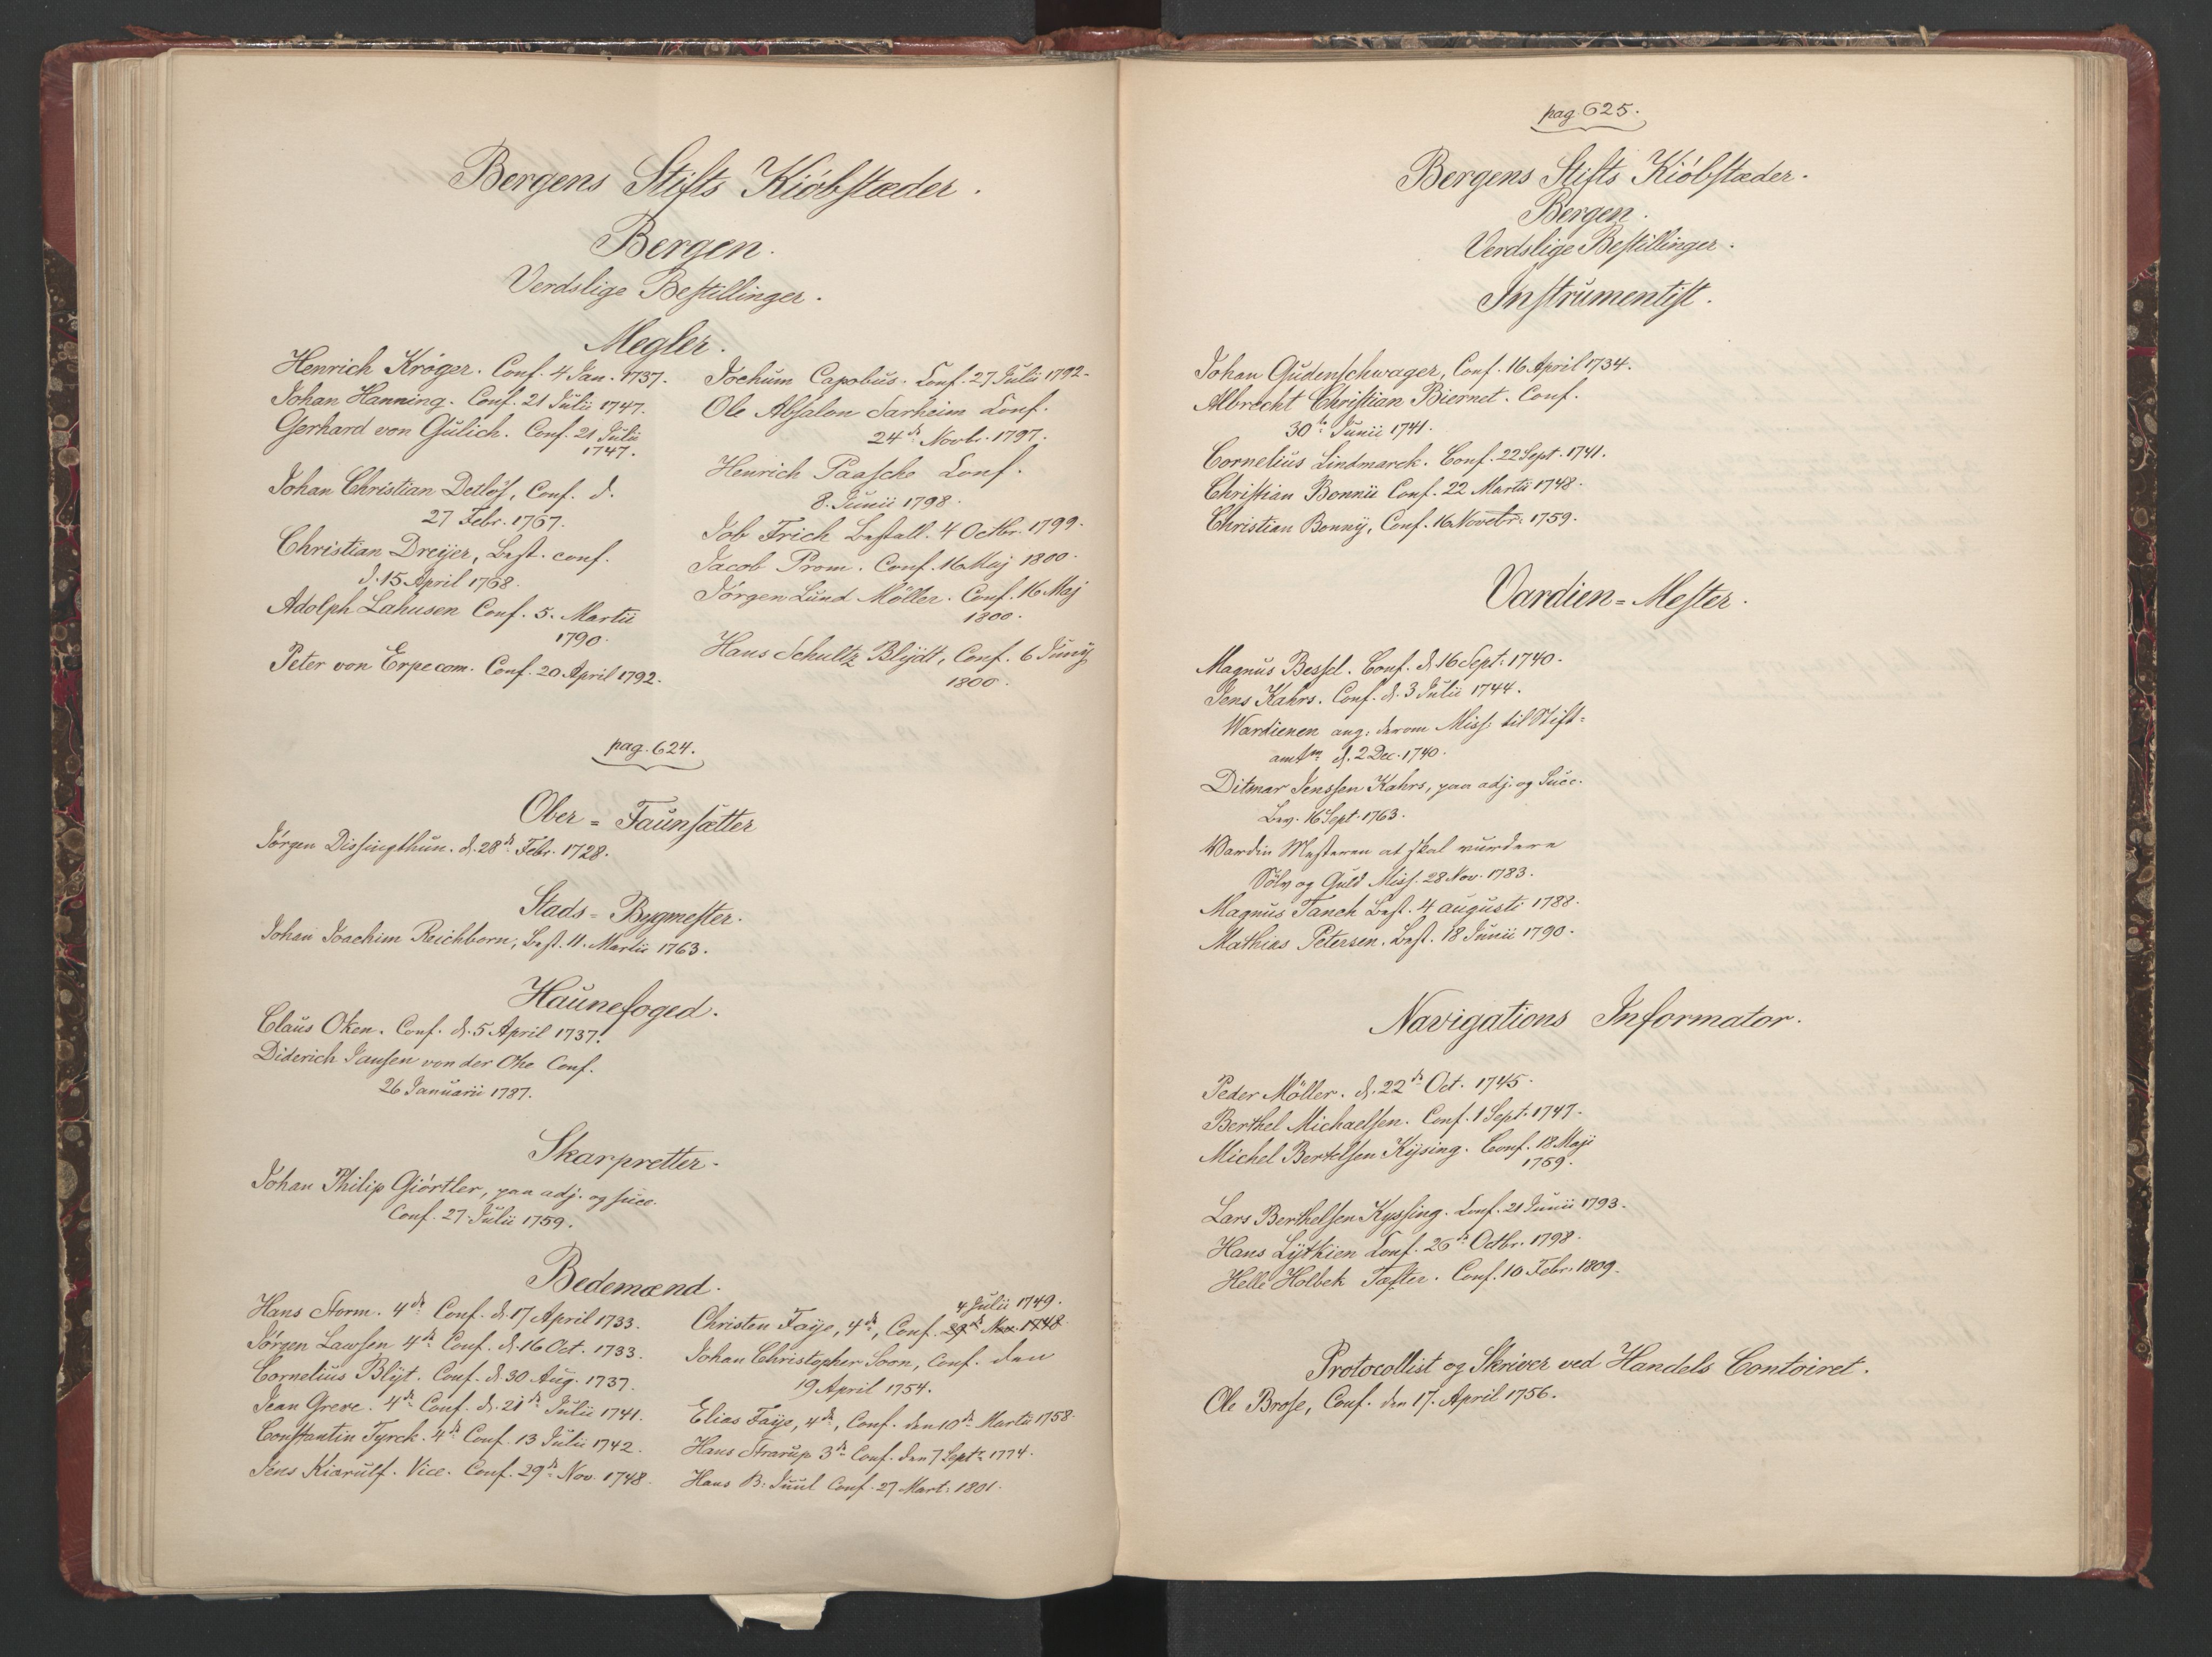 Bergens Stifts Kiöbstæder.
Bergen.
Verdslige Bestillinger.
Megler.
Henrich Kröger. Conf. 4 Jan. 1737.
Johan Hanning. Conf. 21 Julii 1747.
Gerhard von Gülich. Conf. 21 Julii
1747.
Johan Christian Detlöf, Conf. d.
27 Febr. 1767.
Christian Dreyer, Best. conf.
d. 15 April 1768.
Adolph Lahusen Conf. 5. Martii
1790.
Peter von Erpecom. Conf. 20 April 1792.
Jochum Capobus. Conf. 27 Julii 1792.
Ole Absalon Sarheim Conf.
24de Novbr. 1797.
Henrich Paasche Conf.
8. Junii 1798.
Job Frich Bestall. 4 Octbr. 1799.
Jacob Prom. Conf. 16 Maj 1800.
Jörgen Lund Möller. Conf. 16 Maj
1800.
Hans Schultz Blÿdt, Conf. 6 Junÿ
1800.
pag. 624.
Ober-Faunsætter
Jörgen Dissingthun. d. 28de Febr. 1728.
Stads-Bygmester.
Johan Joachim Reichborn, Best. 11. Martii 1763.
Haunefoged.
Claus Oken. Conf. d. 5 April 1737.
Diderich Jansen von der Ohe Conf.
26 Januarii 1787.
Skarpretter.
Johan Philip Giörtler, paa adj. og succ.
Conf. 27. Julii 1759.
Bedemænd.
Hans Storm. 4de Conf. d. 17 April 1733.
Jörgen Lawsen 4de Conf. d. 16 Oct. 1733.
Cornelius Blÿt. Conf. d. 30 Aug. 1737.
Jean Greve. 4de Conf. d. 21de Julii 1741.
Constantin Tyrck. 4de Conf. 13 Julii 1742.
Jens Kiærulf. Vice. Conf. 29de Nov. 1748.
4 Julii 1749.
Christen Faÿe, 4de, Conf. 29de Nov. 1748
Johan Christopher Soon, Conf. den
19 April 1754.
Elias Faÿe, 4de, Conf. den 10de Martii 1758.
Hans Strarup 3de Conf. den 7 Septr 1774.
Hans B. Juul Conf. 27 Mart: 1801.
pag. 625.
Bergens Stifts Kiöbstæder.
Bergen.
Verdslige Bestillinger.
Instrumentist.
Johan Gudenschwager, Conf. 16 April 1734.
Albrecht Christian Biernet. Conf.
30te Junii 1741.
Cornelius Lindmarck. Conf. 22 Sept. 1741.
Christian Bonnii Conf. 22 Martii 1748.
Christian Bonnÿ, Conf. 16 Novebr: 1759.
Vardien-Mester.
Magnus Bessel. Conf. d. 16 Sept: 1740.
Jens Kahrs. Conf. d. 3 Julii 1744.
Wardienen ang: derom Miss: til Stift-
amtm d. 2 Dec. 1740.
Ditmar Jenssen Kahrs, paa adj. og Succ.
Bev. 16 Sept. 1763.
Wardin Mesteren at skal vurdere
Sölv og Guld Miss. 28 Nov. 1783.
Magnus Tanch Best. 4 augusti 1788.
Mathias Petersen. Best. 18 Junii 1790.
Navigations Informator.
Peder Möller. d. 22de Oct. 1745.
Berthel Michaelsen. Conf. 1 Sept. 1747.
Michel Bertelsen Kÿsing. Conf. 18 Maji
1759.
Lars Berthelsen Kyssing. Conf. 21 Junii 1793.
Hans Lÿtkien Conf. 26de Octbr. 1798.
Helle Holbek Tæster. Conf. 10 Febr. 1809.
Protocollist og Skriver ved Handels Contoiret.
Ole Brose, Conf. den 17. April 1756.